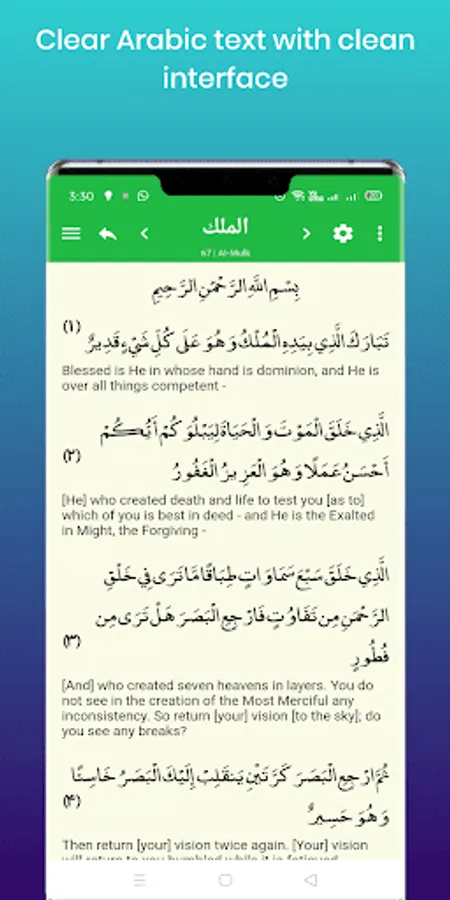 Clear Arabic text with clean
interface
3:30
الملك
67 | Al-Mulk
بِسْمِ اللَّهِ الرَّحْمَٰنِ الرَّحِيمِ
تَبَارَكَ الَّذِي بِيَدِهِ الْمُلْكُ وَهُوَ عَلَىٰ كُلِّ شَيْءٍ قَدِيرٌ (١)
Blessed is He in whose hand is dominion, and He is
over all things competent -
الَّذِي خَلَقَ الْمَوْتَ وَالْحَيَاةَ لِيَبْلُوَكُمْ أَيُّكُمْ
أَحْسَنُ عَمَلًا وَهُوَ الْعَزِيزُ الْغَفُورُ (٢)
[He] who created death and life to test you [as to]
which of you is best in deed - and He is the Exalted
in Might, the Forgiving -
الَّذِي خَلَقَ سَبْعَ سَمَاوَاتٍ طِبَاقًا مَّا تَرَىٰ فِي خَلْقِ
الرَّحْمَٰنِ مِن تَفَاوُتٍ فَارْجِعِ الْبَصَرَ هَلْ تَرَىٰ مِن
فُطُورٍ (٣)
[And] who created seven heavens in layers. You do
not see in the creation of the Most Merciful any
inconsistency. So return [your] vision [to the sky]; do
you see any breaks?
ثُمَّ ارْجِعِ الْبَصَرَ كَرَّتَيْنِ يَنقَلِبْ إِلَيْكَ الْبَصَرُ خَاسِئًا
وَهُوَ حَسِيرٌ (۴)
Then return [your] vision twice again. [Your] vision
will return to you humbled while it is fatigued